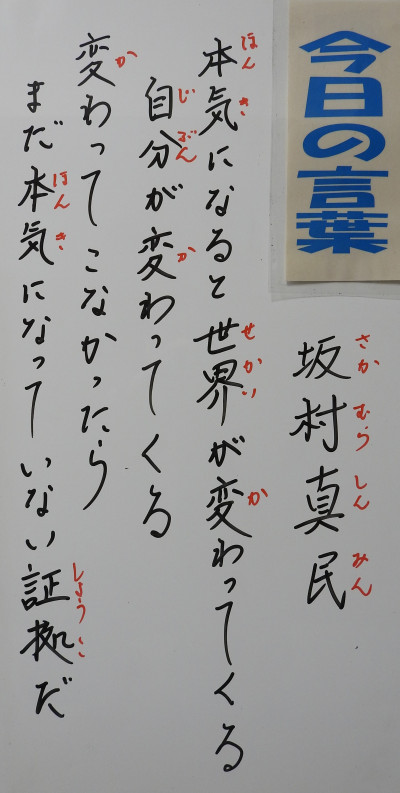 今日の言葉
坂村真民
さかむらしんみん
本気になると世界が変わってくる
ほんきせかいか
自分が変わってくる
じぶんか
変わってこなかったら
か
まだ本気になっていない証拠だ
ほんきしょうこ